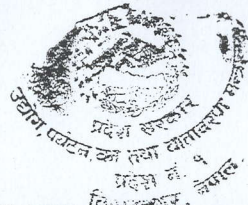 प्रदेश सरकार
उद्योग, पर्यटन, वन तथा वातावरण
प्रदेश नं. १
नेपाल